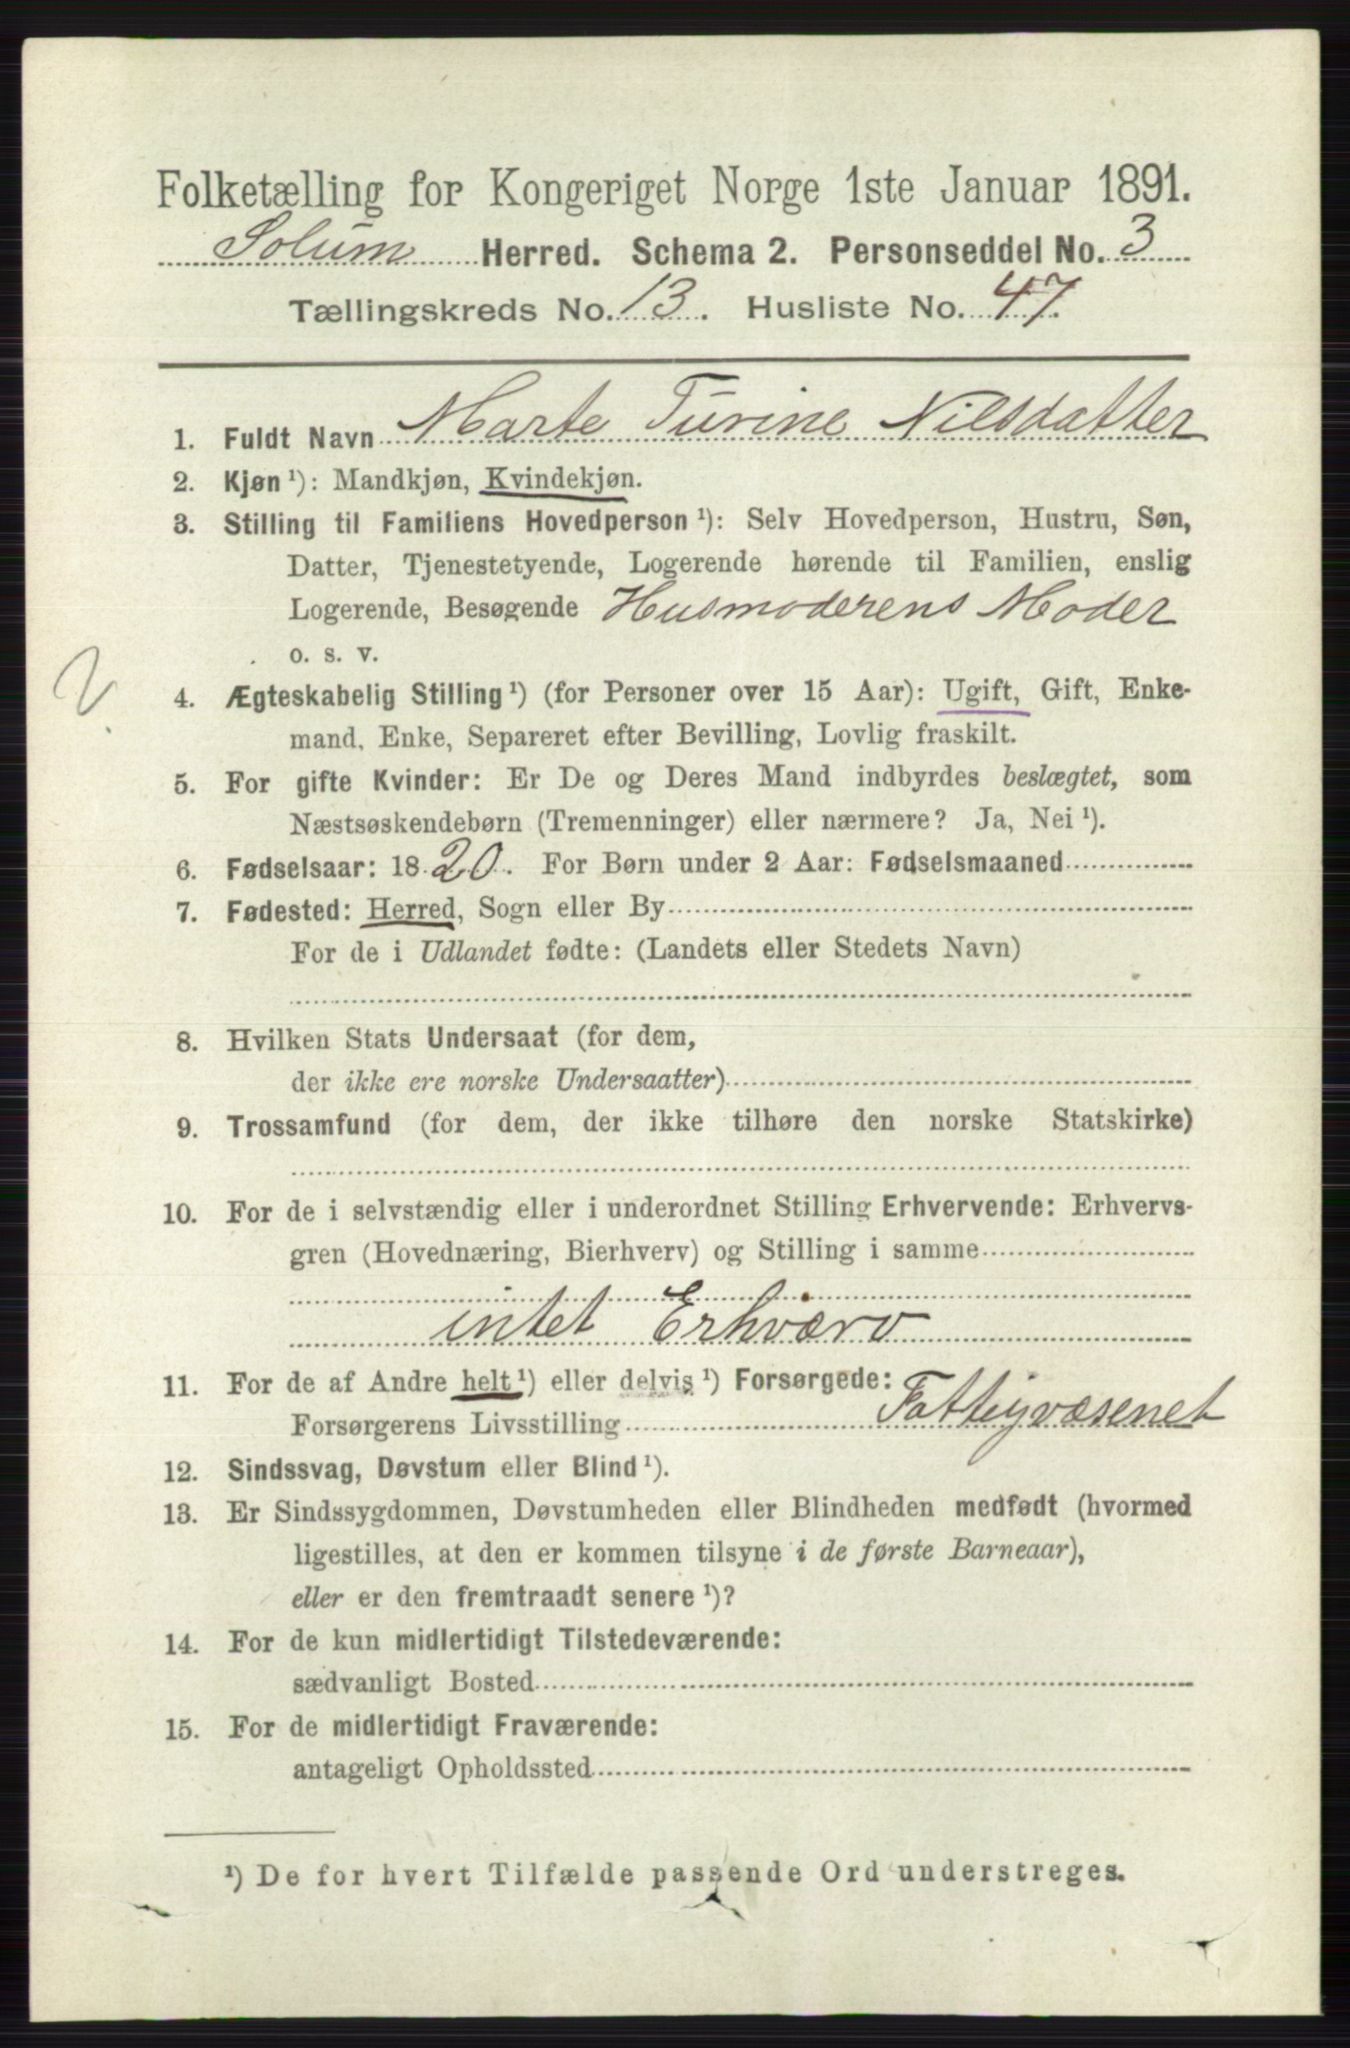 Folketælling for Kongeriget Norge 1ste Januar 1891.
Solum Herred. Schema 2. Personseddel No. 3
Tællingskreds No. 13. Husliste No. 47.
1. Fuldt Navn Marte Turine Nilsdatter
2. Kjøn ¹): Mandkjøn, Kvindekjøn.
3. Stilling til Familiens Hovedperson ¹): Selv Hovedperson, Hustru, Søn,
Datter, Tjenestetyende, Logerende hørende til Familien, enslig
Logerende, Besøgende Husmoderens Moder
o. s. v.
2
4. Ægteskabelig Stilling ¹) (for Personer over 15 Aar): Ugift, Gift, Enke-
mand, Enke, Separeret efter Bevilling, Lovlig fraskilt.
5. For gifte Kvinder: Er De og Deres Mand indbyrdes beslægtet, som
Næstsøskendebørn (Tremenninger) eller nærmere? Ja, Nei ¹).
6. Fødselsaar: 1820. For Børn under 2 Aar: Fødselsmaaned
7. Fødested: Herred, Sogn eller By
For de i Udlandet fødte: (Landets eller Stedets Navn)
8. Hvilken Stats Undersaat (for dem,
der ikke ere norske Undersaatter)
9. Trossamfund (for dem, der ikke tilhøre den norske Statskirke)
10. For de i selvstændig eller i underordnet Stilling Erhvervende: Erhvervs-
gren (Hovednæring, Bierhverv) og Stilling i samme
intet Erhværv
11. For de af Andre helt ¹) eller delvis ¹) Forsørgede:
Forsørgerens Livsstilling Fattigvæsenet
12. Sindssvag, Døvstum eller Blind ¹).
13. Er Sindssygdommen, Døvstumheden eller Blindheden medfødt (hvormed
ligestilles, at den er kommen tilsyne i de første Barneaar),
eller er den fremtraadt senere ¹)?
14. For de kun midlertidigt Tilstedeværende:
sædvanligt Bosted
15. For de midlertidigt Fraværende:
antageligt Opholdssted
¹) De for hvert Tilfælde passende Ord understreges.